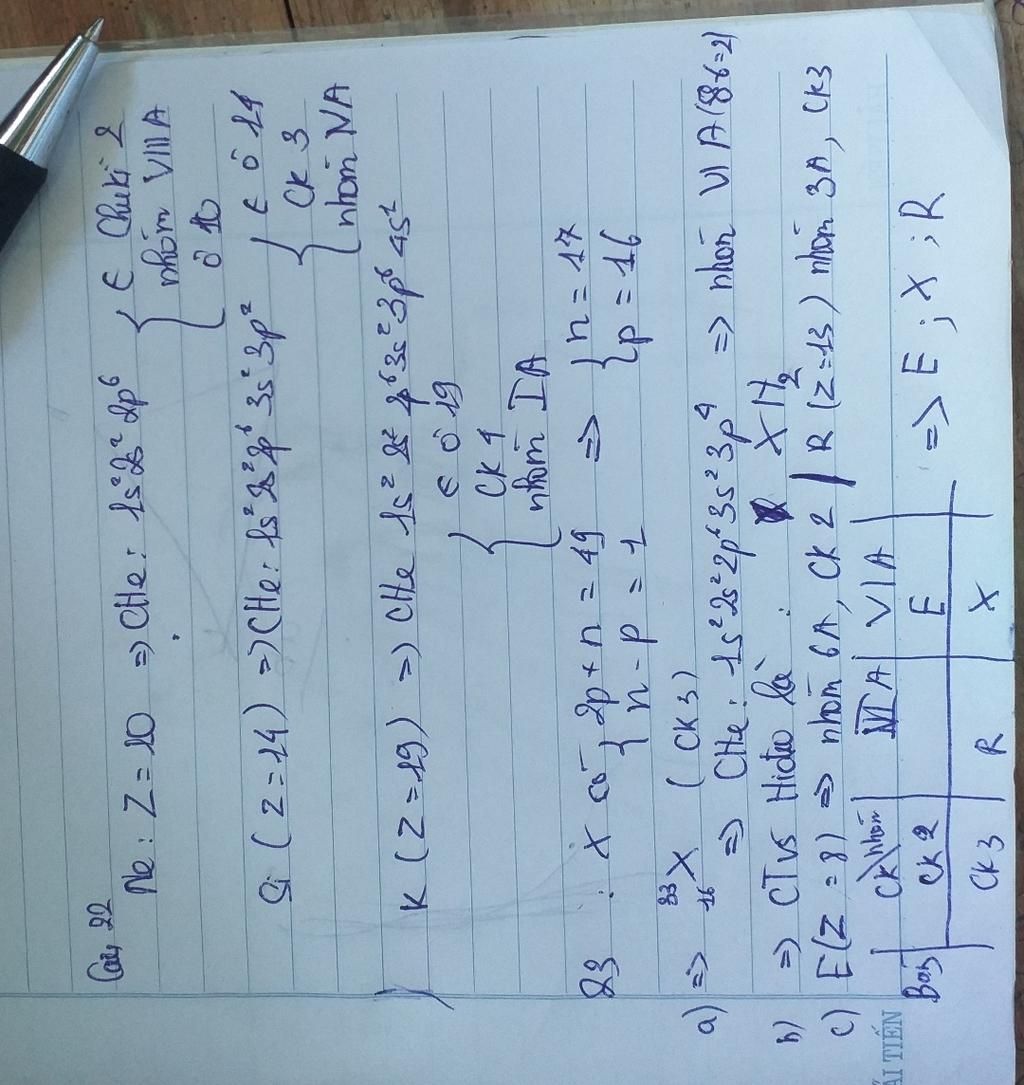 Câu 22
Ne: Z = 10 => CHe: 1s² 2s² 2p⁶ { ∈ Chukì 2
nhóm VIIIA
ô 10
Si (Z = 14) => CHe: 1s² 2s² 2p⁶ 3s² 3p² { ∈ ô 14
CK 3
nhóm IVA
K (Z = 19) => CHe 1s² 2s² 2p⁶ 3s² 3p⁶ 4s²
{ ∈ ô 19
CK 4
nhóm IA
23 : X có { 2p + n = 49 => { n = 17
n - p = 1 p = 16
a) => ³³₁₆X (CK 3)
=> CHe: 1s² 2s² 2p⁶ 3s² 3p⁴ => nhóm VIA (8-6=2)
b) => CT vs Hidro là : XH₂
c) E (Z = 8) => nhóm 6A, CK 2 | R (Z = 13) nhóm 3A, CK3
CK\nhóm IIIA VIA
CK 2 E => E ; X ; R
CK 3 R X
ẢI TIẾN